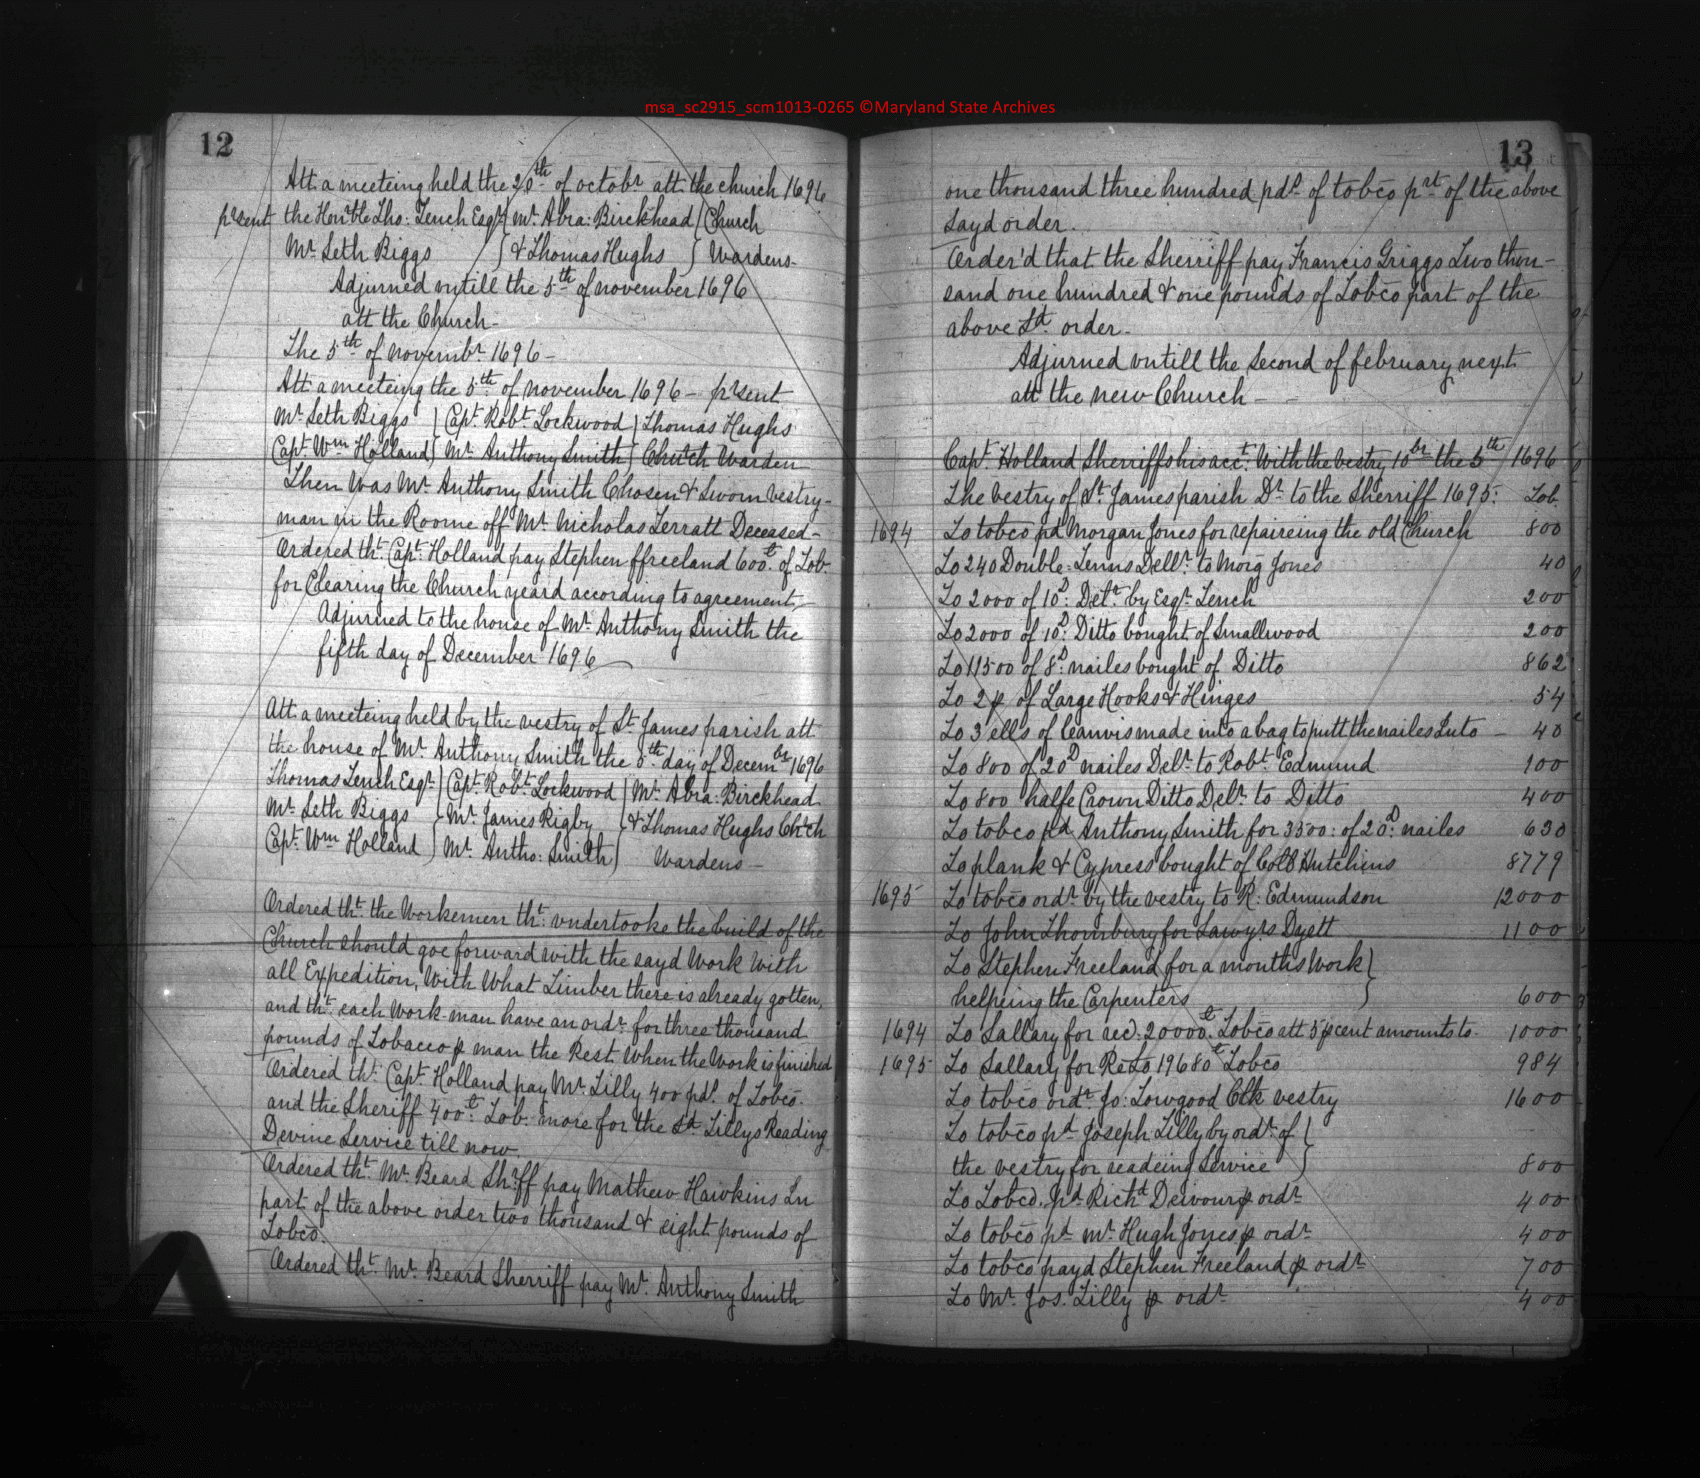 msa_sc2915_scm1013-0265 ©Maryland State Archives
12
Att a meeteing held the 20th of octobr att the church 1696
prsent the Honrble Tho: Tench Esqr { mr Abra: Birckhead { Church
Mr Seth Biggs } & Thomas Hughs } Wardens-
Adjurned vntill the 5th of november 1696
att the Church-
The 5th of novembr 1696-
Att a meeteing the 5th of november 1696- prsent
Mr Seth Biggs } Capt Robt Lockwood } Thomas Hughs
Capt Wm Holland } Mr Anthony Smith } Church Warden
Then Was Mr Anthony Smith Chosen & Sworn vestry-
man in the Roome off Mr Nicholas Terratt Deceased-
Ordered tht Capt Holland pay Stephen ffreeland 600lb of Tob
for Clearing the Church yeard according to agreement,-
Adjurned to the house of Mr Anthony Smith the
fifth day of December 1696
Att a meeteing held by the vestry of St James parish att
the house of Mr Anthony Smith the 5th day of Decembr 1696
Thomas Tench Esqr } Capt Robt Lockwood } Mr Abra: Birckhead
Mr Seth Biggs { Mr James Rigby { & Thomas Hughs Chrch
Capt Wm Holland } Mr Antho: Smith } Wardens-
Ordered tht the Workemen tht vndertooke the build of the
Church should goe forward with the sayd Work With
all Expedition, With What Timber there is already gotten,
and tht each Work-man have an ordr for three thousand
pounds of Tobacco p man the Rest When the Work is finished
Ordered tht Capt Holland pay Mr Lilly 400 pds of Tobco.
and the Sheriff 400lb Tob. more for the Sd Lillys Reading
Devine Service till now.
Ordered tht Mr Beard Shrff pay Mathew Hawkins In
part of the above order two thousand & eight pounds of
Tobco.
Ordered tht Mr Beard Sherriff pay Mr Anthony Smith
13
one thousand three hundred pds of tobco prt of the above
sayd order.
Order'd that the Sherriff pay Francis Griggs Two thou-
sand one hundred & one pounds of Tobco part of the
above Sd order-
Adjurned vntill the Second of february next
att the new Church - -
Capt Holland Sherriffs his acct With the vestry 10br the 5th 1696
The vestry of St James parish Dr to the Sherriff 1695: Tob.
1694 To tobco pd Morgan Jones for repaireing the old Church 800
To 240 Double Tenns Dellr to Morg Jones 40
To 2000 of 10D: Delr by Esqr Tench 200
To 2000 of 10D: Ditto bought of Smallwood 200
To 11500 of 8D: nailes bought of Ditto 862
To 2 p of Large Hooks & Hinges 54
To 3 ells of Canvis made into a bag to putt the nailes Into - 40
To 800 of 20D nailes Delr to Robt Edmund 100
To 800 halfe Crown Ditto Delr to Ditto 400
To tobco pd Anthony Smith for 3500: of 20D: nailes 630
To plank & Cypress bought of Coll Hutchins 8779
1695 To tobco ordr by the vestry to R: Edmundson 12000
To John Thornbury for Sawyrs Dyett 1100
To Stephen Freeland for a months Work }
helpeing the Carpenters } 600
1694 To Sallary for recd. 20000lb Tobco att 5 p cent amounts to 1000
1695 To Sallary for Re To 19680lb Tobco 984
To tobco ordr Jo: Lowgood Clk vestry 1600
To tobco pd Joseph Lilly by ordr of {
the vestry for readeing Service } 800
To Tobco. pd Richd Deivour p ordr 400
To tobco pd mr Hugh Jones p ordr 400
To tobco payd Stephen Freeland p ordr 700
To Mr Jos. Lilly p ordr 400